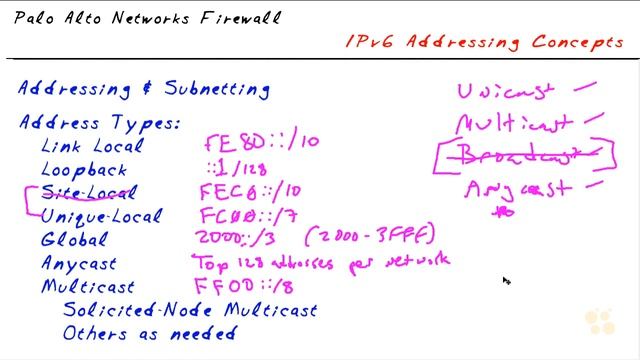 Palo Alto Networks Firewall
IPv6 Addressing Concepts
Addressing & Subnetting
Address Types:
Link Local FE80::/10
Loopback ::1/128
Site-Local FEC0::/10
Unique-Local FC00::/7
Global 2000::/3 (2000-3FFF)
Anycast Top 128 addresses per network
Multicast FF00::/8
Solicited-Node Multicast
Others as needed
Unicast
Multicast
Broadcast
Anycast